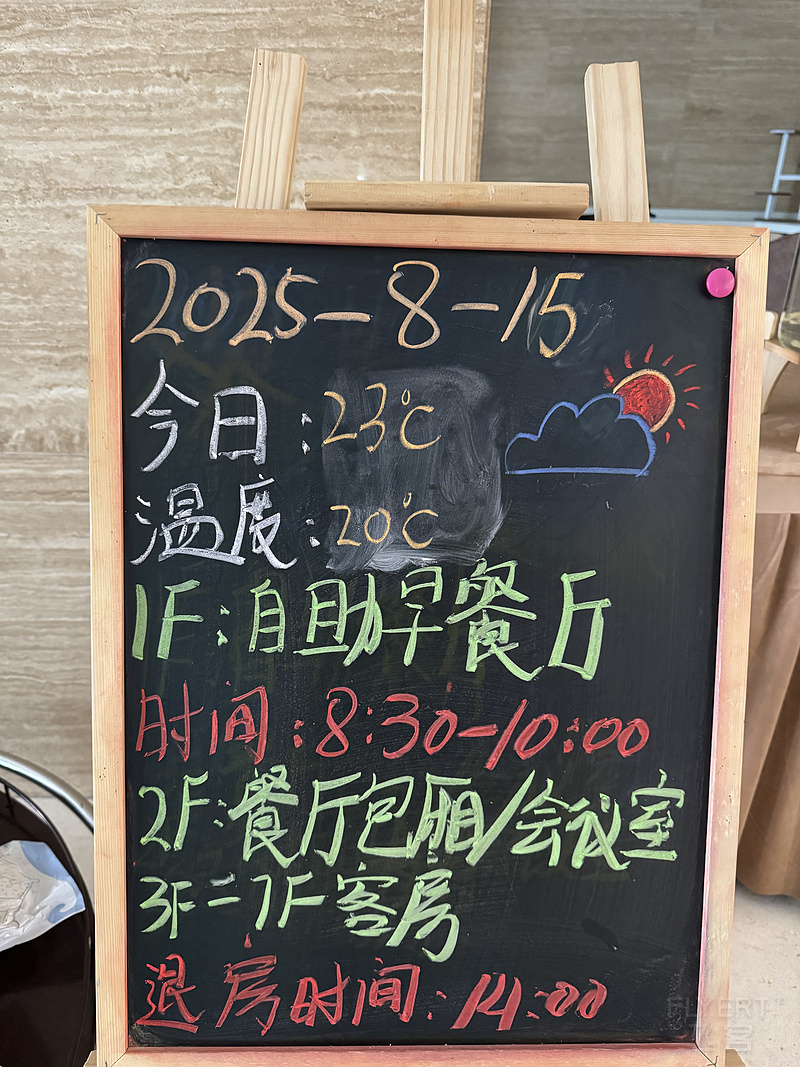 2025-8-15
今日:23℃
温度:20℃
1F:自助早餐厅
时间:8:30-10:00
2F:餐厅包厢/会议室
3F-7F客房
退房时间:14:00
FLYERT